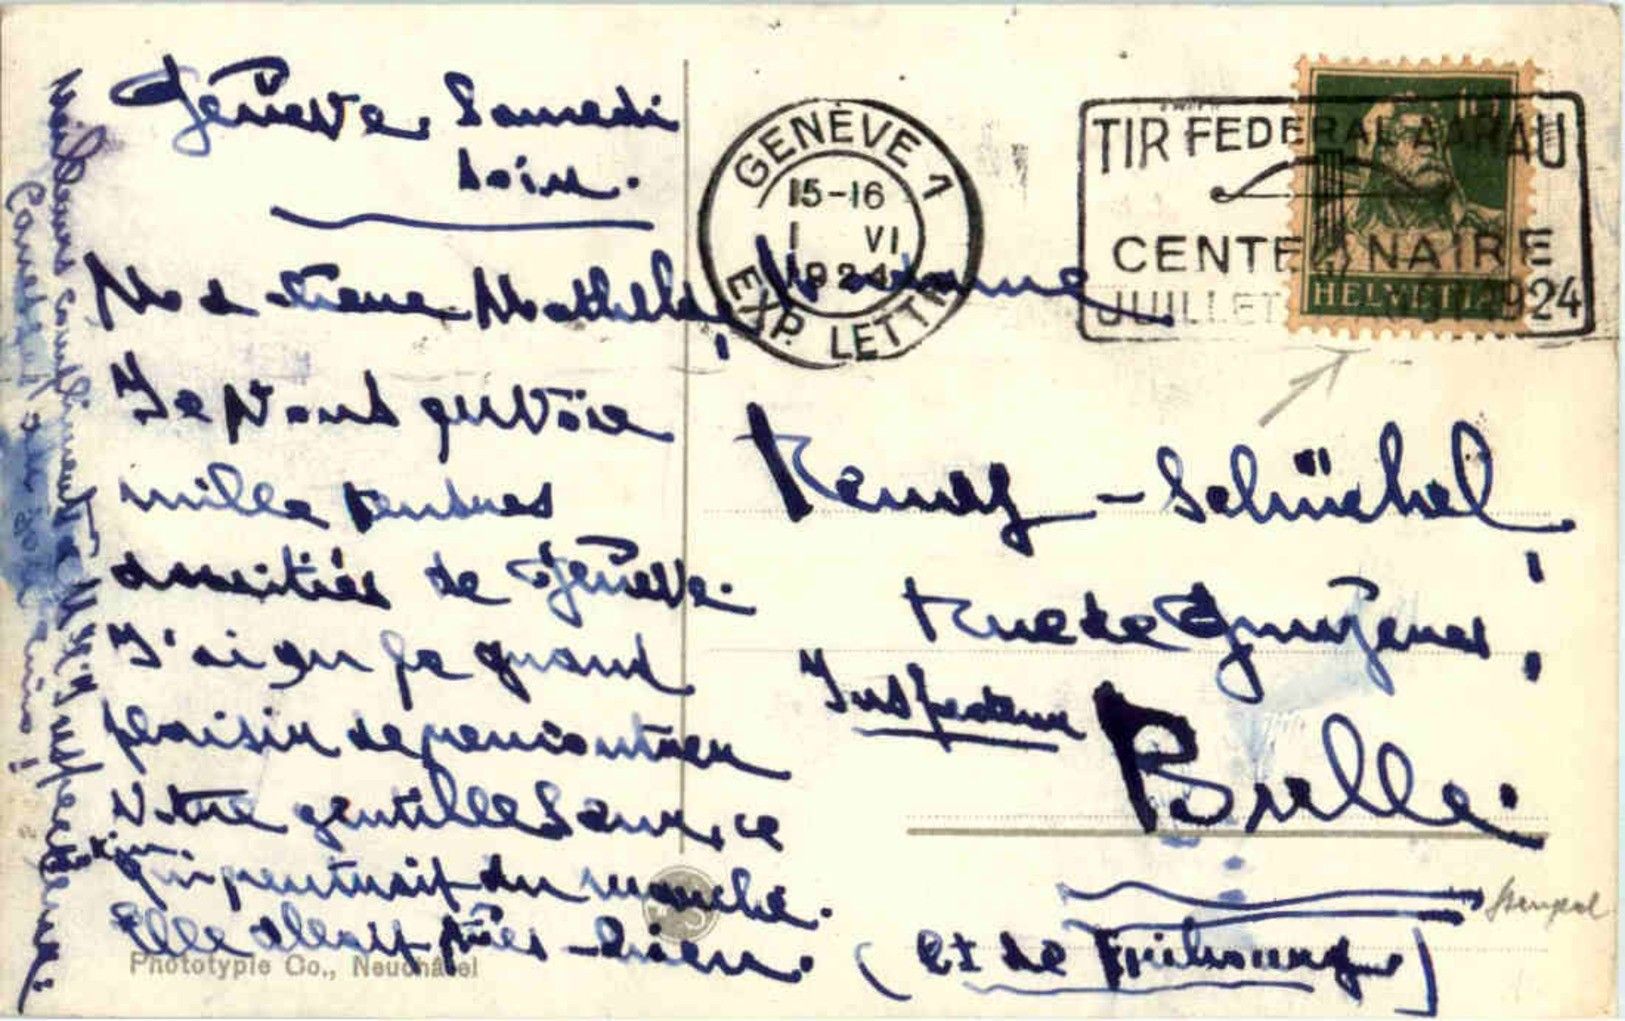 Genève. Samedi
soir.
Ma chère Mathilde,
Je vous envoie
mille tendres
amitiés de Genève.
J'ai eu le grand
plaisir de rencontrer
votre gentille
qui rentrait du marché.
Elle allait très bien.
compliments à
Phototypie Co., Neuchâtel
GENÈVE 1
15-16
1 VI
1924
EXP. LETTR
TIR FEDERAL AARAU
CENTENAIRE
JUILLET 1924
HELVETIA
Madame
Schüchel
Rue de Gruyères,
Inspecteur
Bulle.
(Ct de Fribourg)
Stempel